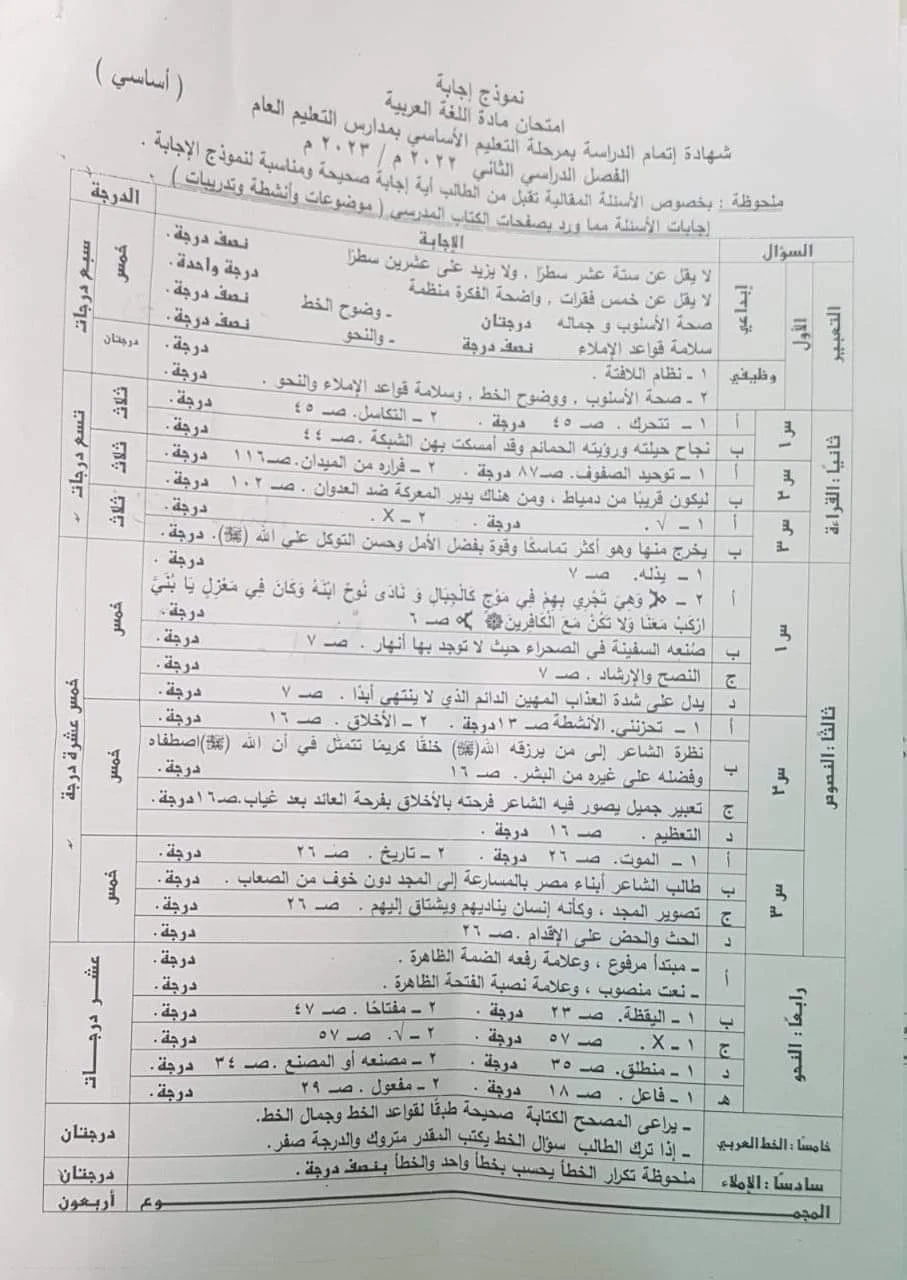 نموذج إجابة
( أساسي )
امتحان مادة اللغة العربية
شهادة إتمام الدراسة بمرحلة التعليم الأساسي بمدارس التعليم العام
الفصل الدراسي الثاني ٢٠٢٢ م / ٢٠٢٣ م
ملحوظة : بخصوص الأسئلة المقالية تقبل من الطالب أية إجابة صحيحة ومناسبة لنموذج الإجابة .
إجابات الأسئلة مما ورد بصفحات الكتاب المدرسي ( موضوعات وأنشطة وتدريبات )
السؤال الإجابة الدرجة
التعبير الأول إبداعي لا يقل عن ستة عشر سطرًا , ولا يزيد على عشرين سطرًا نصف درجة . خمس سبع درجات
لا يقل عن خمس فقرات , واضحة الفكرة منظمة درجة واحدة .
صحة الأسلوب و جماله درجتان - وضوح الخط نصف درجة .
سلامة قواعد الإملاء نصف درجة - والنحو نصف درجة .
وظيفي ١ - نظام اللافتة . درجة . درجتان
٢ - صحة الأسلوب , ووضوح الخط , وسلامة قواعد الإملاء والنحو . درجة .
ثانيًا : القراءة س ١ أ ١ – تتحرك . صـ ٤٥ درجة . ٢ – التكاسل . صـ ٤٥ درجة . ثلاث تسع درجات
ب نجاح حيلته ورؤيته الحمائم وقد أمسكت بهن الشبكة . صـ ٤٤ درجة .
س ٢ أ ١ – توحيد الصفوف . صـ ٨٧ درجة . ٢ – فراره من الميدان . صـ ١١٦ درجة . ثلاث
ب ليكون قريبًا من دمياط , ومن هناك يدير المعركة ضد العدوان . صـ ١٠٢ درجة .
س ٣ أ ١ – √ . درجة . ٢ – X . درجة . ثلاث
ب يخرج منها وهو أكثر تماسكًا وقوة بفضل الأمل وحسن التوكل على الله (ﷻ). درجة .
ثالثًا : النصوص س ١ أ ١ – يذله . صـ ٧ درجة . خمس خمس عشرة درجة
٢ – وَهِيَ تَجْرِي بِهِمْ فِي مَوْجٍ كَالْجِبَالِ وَ نَادَى نُوحٌ ابْنَهُ وَكَانَ فِي مَعْزِلٍ يَا بُنَيَّ
ارْكَبْ مَعَنَا وَلَا تَكُنْ مَعَ الْكَافِرِينَ صـ ٦ درجة .
ب صُنعه السفينة في الصحراء حيث لا توجد بها أنهار . صـ ٧ درجة .
ج النصح والإرشاد . صـ ٧ درجة .
د يدل على شدة العذاب المهين الدائم الذي لا ينتهى أبدًا . صـ ٧ درجة .
س ٢ أ ١ – تحزنني. الأنشطة صـ ١٣ درجة . ٢ – الأخلاق . صـ ١٦ درجة . خمس
ب نظرة الشاعر إلى من يرزقه الله(ﷻ) خلقًا كريمًا تتمثل في أن الله (ﷻ)اصطفاه
وفضله على غيره من البشر. صـ ١٦ درجة .
ج تعبير جميل يصور فيه الشاعر فرحته بالأخلاق بفرحة العائد بعد غياب.صـ١٦ درجة .
د التعظيم . صـ ١٦ درجة .
س ٣ أ ١ – الموت. صـ ٢٦ درجة . ٢ – تاريخ . صـ ٢٦ درجة . خمس
ب طالب الشاعر أبناء مصر بالمسارعة إلى المجد دون خوف من الصعاب . درجة .
ج تصوير المجد , وكأنه إنسان يناديهم ويشتاق إليهم . صـ ٢٦ درجة .
د الحث والحض على الإقدام . صـ ٢٦ درجة .
رابعًا : النحو أ – مبتدأ مرفوع , وعلامة رفعه الضمة الظاهرة . درجة . عشر درجات
– نعت منصوب , وعلامة نصبة الفتحة الظاهرة . درجة .
ب ١ – اليقظة. صـ ٢٣ درجة . ٢ – مفتاحًا . صـ ٤٧ درجة .
ج ١ – X . صـ ٥٧ درجة . ٢ – √. صـ ٥٧ درجة .
د ١ – منطلق. صـ ٣٥ درجة . ٢ – مصنعه أو المصنع .صـ ٣٤ درجة .
هـ ١ – فاعل . صـ ١٨ درجة . ٢ – مفعول . صـ ٢٩ درجة .
خامسًا : الخط العربي – يراعى المصحح الكتابة صحيحة طبقًا لقواعد الخط وجمال الخط. درجتان
– إذا ترك الطالب سؤال الخط يكتب المقدر متروك والدرجة صفر.
سادسًا : الإملاء ملحوظة تكرار الخطأ يحسب بخطأ واحد والخطأ بنصف درجة . درجتان
المجمـــوع أربعون